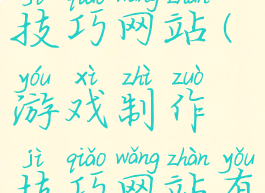 技巧网站(
yóu xì zhì zuò
游戏制作
jì qiǎo wǎng zhàn yǒu
技巧网站有